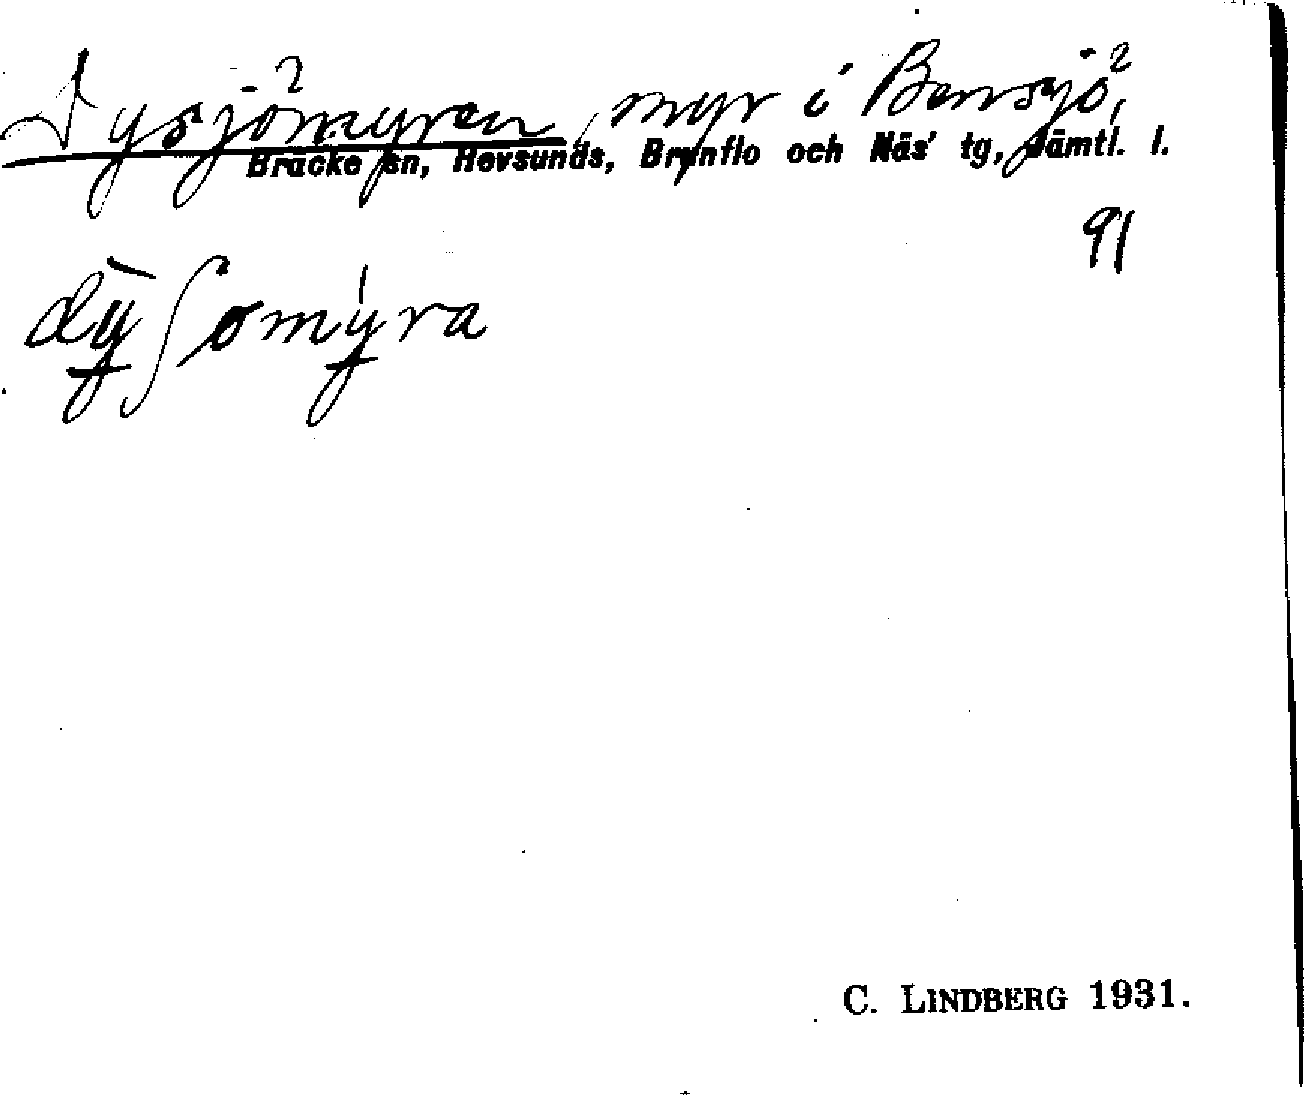 Dysjömyren, myr i Bensjö²,
Bräcke sn, Revsunds, Brunflo och Näs' tg, Jämtl. l.
91
dỳʃomýra
C. LINDBERG 1931.